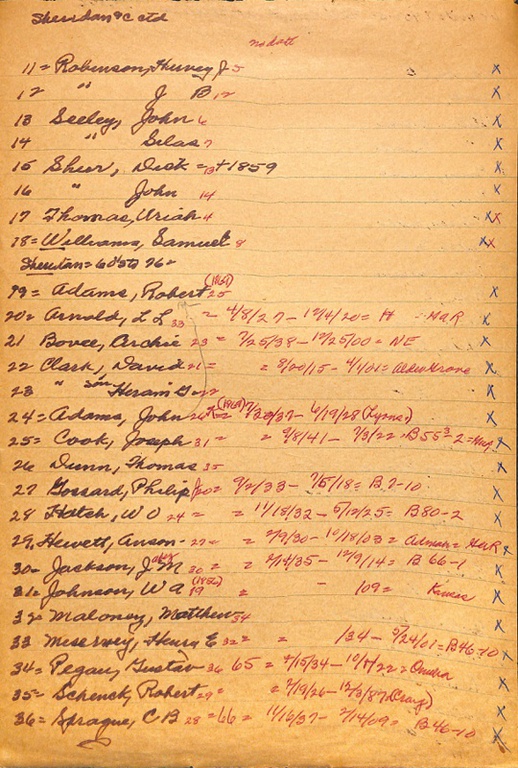 Sheridan & c ctd
no date
11 = Robinson, Hervey J 5 x
12 " J B 12 x
13 Seeley, John 6 x
14 " Silas 7 x
15 Shur, Dick = 13 + 1859 x
16 " John 14 x
17 Thomas, Uriah 4 xx
18 = Williams, Samuel 8 xx
Sheridan = 60s to 76 =
(1869)
19 = Adams, Robert 25 x
20 = Arnold, L L 33 = 4/8/27 - 12/4/20 = H x
21 Bovee, Archie 23 = 7/25/38 - 12/25/00 = NE x
22 Clark, David 21 = = 8/20/15 - 4/1/01 = Alder Grove x
23 " son Hiram G 22 x
24 = Adams, John 26 (1869) 7/30/37 - 6/19/28 (Lyons) x
25 = Cook, Joseph 31 = = 9/8/41 - 7/3/22 - B55 x
26 Dunn, Thomas 35 x
27 Gossard, Philip J 20 = 9/2/33 - 7/5/18 = B 7-10 x
28 Hatch, W O 24 = = 11/18/32 - 5/12/25 = B80-2 x
29, Hewett, Anson - 27 = = 2/9/30 - 10/18/03 = x
30 = Jackson, J M 30 = = 2/14/35 - 12/9/14 = B 66-1 x
31 = Johnson, W A (1856) 19 = - 109 = Kansas x
32 = Maloney, Matthew 34 x
33 Meservey, Henry E 32 = = 134 - 5/24/01 = B46-10 x
34 = Pegau, Gustav 36 65 = 2/15/34 - 10/1/22 = Omaha x
35 = Schenck, Robert 29 = = 2/19/26 - 12/3/87 (Craig) x
36 = Sprague, C B 28 = 66 = 11/16/37 - 2/14/09 = B46-10 x